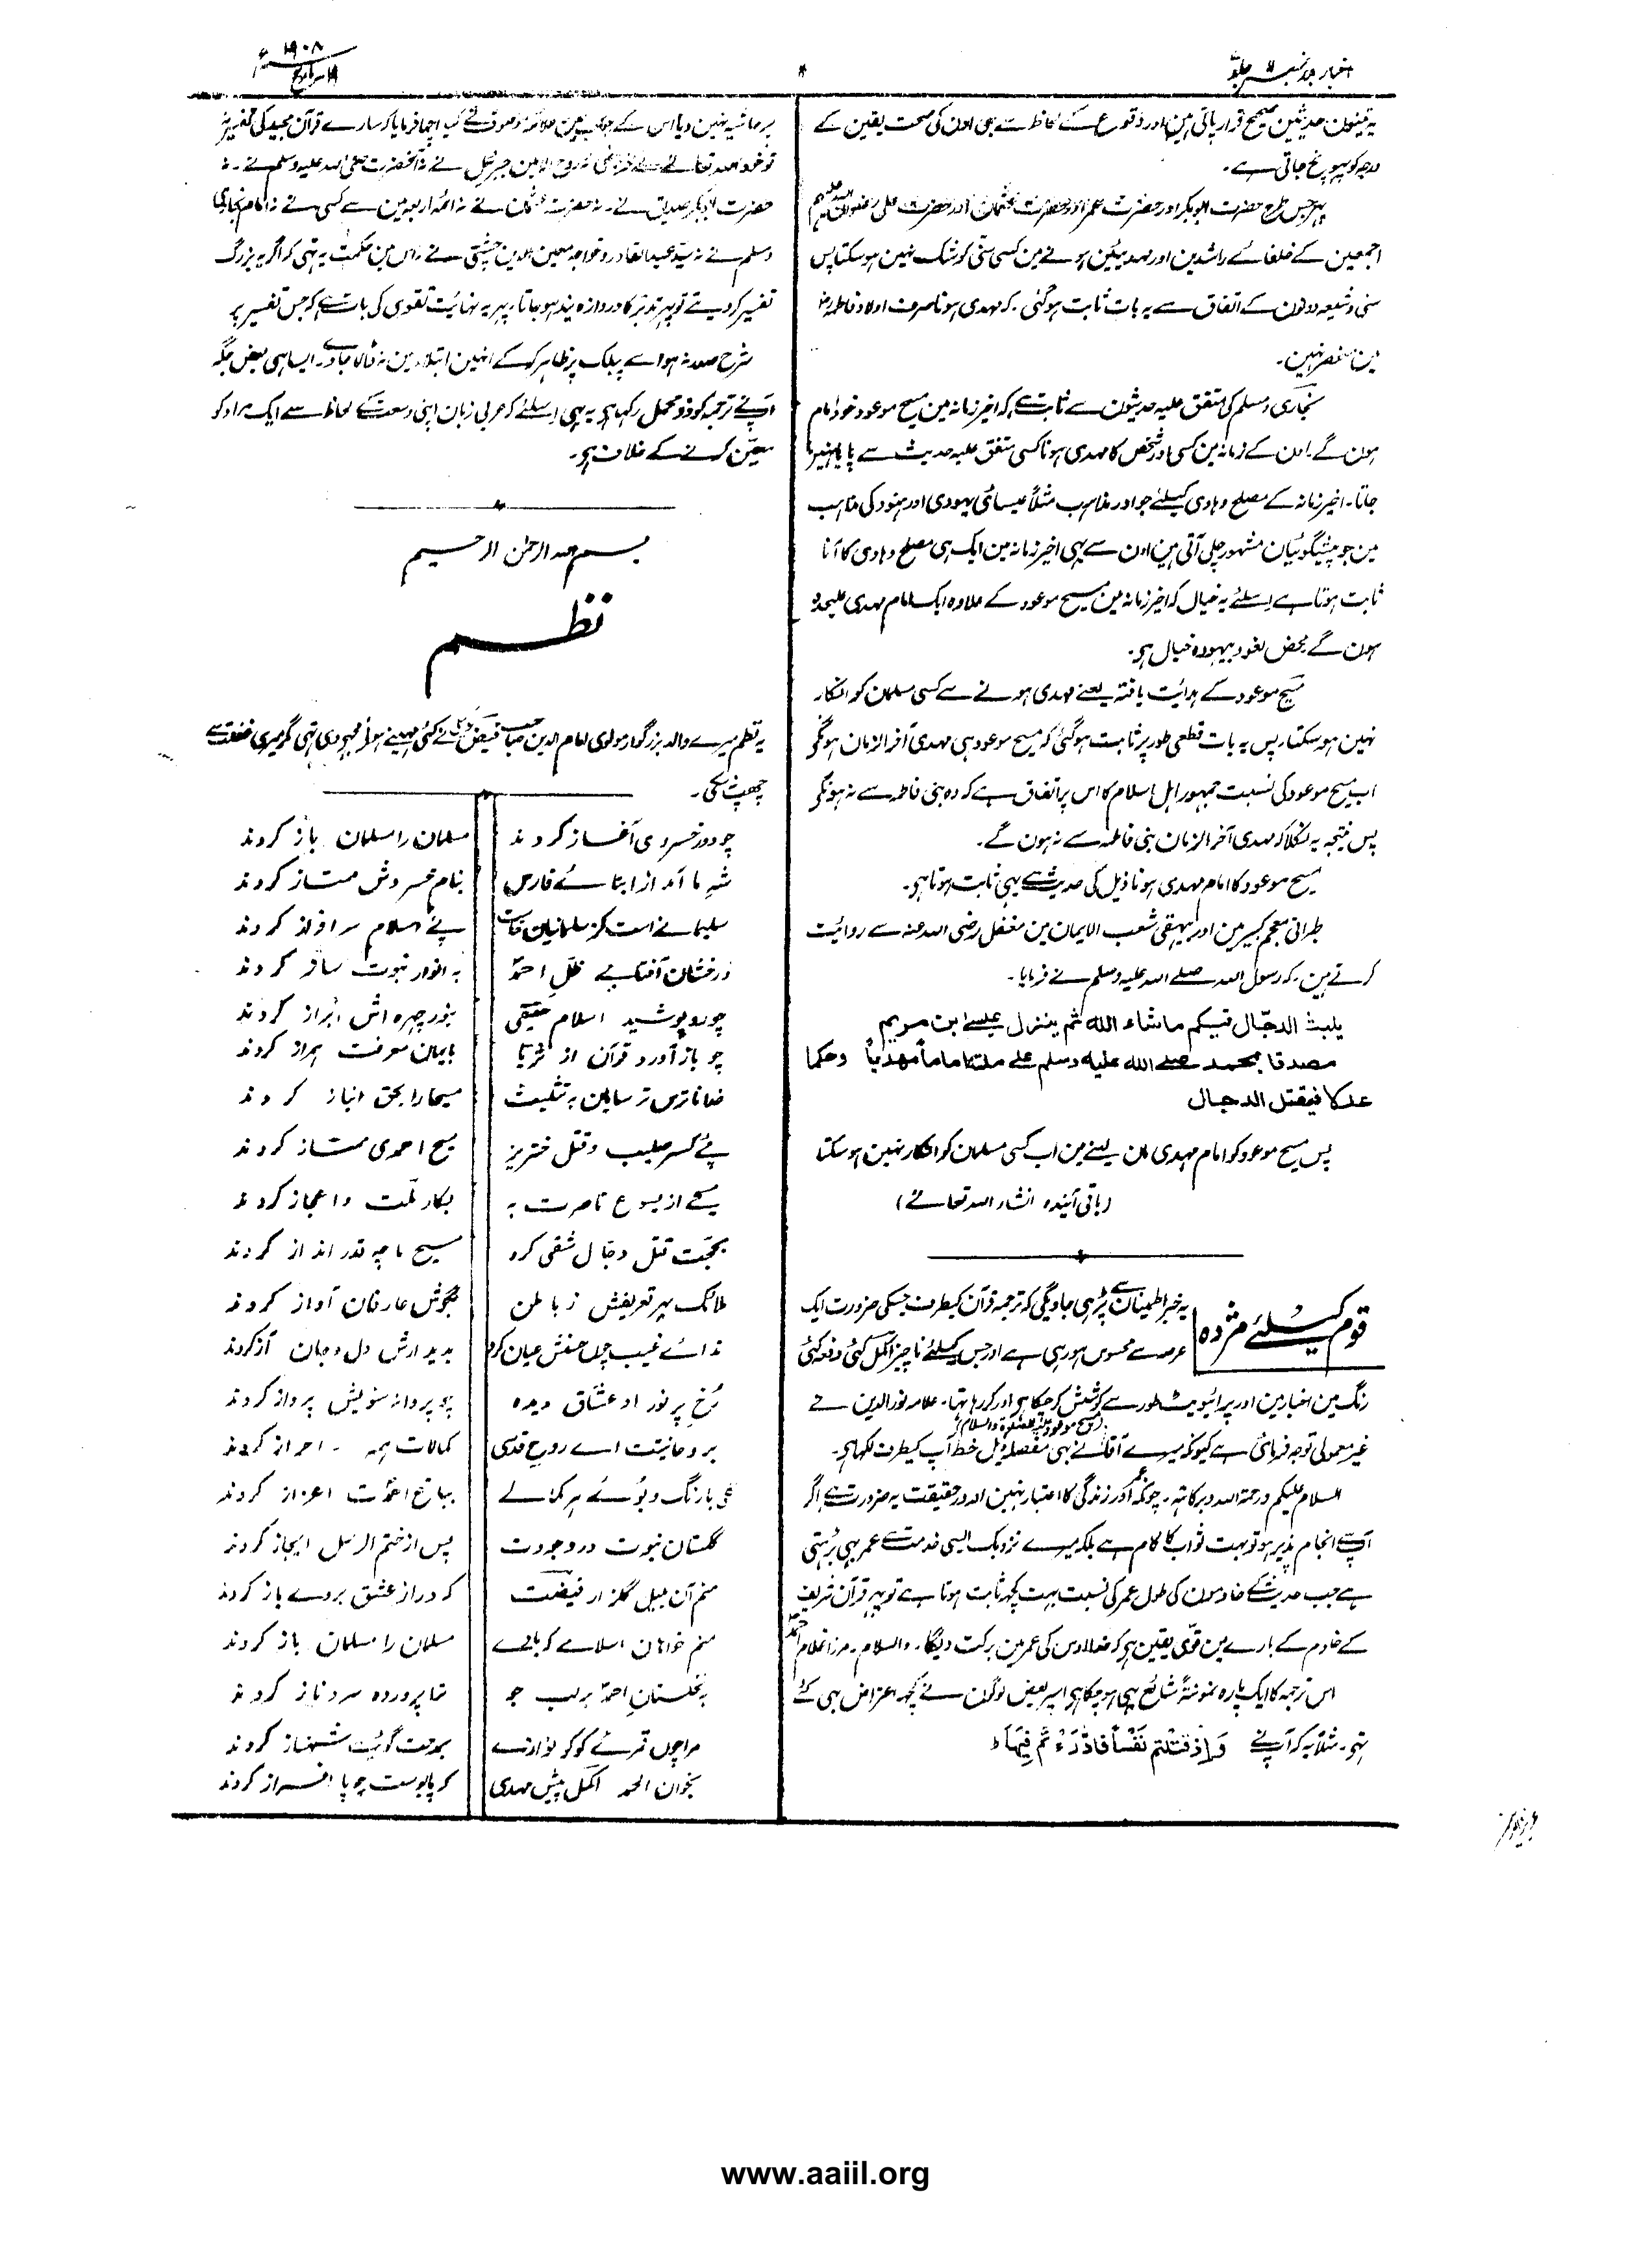 اخبار بدر نمبر ۱۱ جلد
۱۹۰۸
۱۹ مارچ
یہ تینوں حدیثین صحیح قرار پاتی ہین اور وقوع کے لحاظ سے بھی اون کی صحت یقین کے
درجہ کو پہونچ جاتی ہے۔
پہر جس طرح حضرت ابوبکر اور حضرت عمر اور حضرت عثمان اور حضرت علی رضوان اللہ علیہم
اجمعین کے خلفائے راشدین اور مہدیین ہونے مین کسی سنی کو شک نہین ہو سکتا پس
سنی و شیعہ دونون کے اتفاق سے یہ بات ثابت ہو گئی۔ کہ مہدی ہونا صرف اولاد فاطمہؓ
مین منحصر نہین۔
بخاری و مسلم کی متفق علیہ حدیثون سے ثابت ہے کہ اخیر زمانہ مین مسیح موعود خود امام
ہون گے۔ اون کے زمانہ مین کسی اور شخص کا مہدی ہونا کسی متفق علیہ حدیث سے پایا نہین
جاتا۔ اخیر زمانہ کے مصلح و ہادی کیلئے جو اور مذاہب مثلاً عیسائی یہودی اور ہنود کی مذاہب
مین جو پیشگوئیان مشہور چلی آتی ہین اون سے بھی اخیر زمانہ مین ایک ہی مصلح و ہادی کا آنا
ثابت ہوتا ہے اسلئے یہ خیال کہ اخیر زمانہ مین مسیح موعود کے علاوہ ایک امام مہدی علیحدہ
ہون گے محض لغو و بیہودہ خیال ہے۔
مسیح موعود کے ہدایت یافتہ یعنے مہدی ہونے سے کسی مسلمان کو انکار
نہین ہو سکتا۔ پس یہ بات قطعی طور پر ثابت ہو گئی کہ مسیح موعود ہی مہدی آخر الزمان ہونگے
اب مسیح موعود کی نسبت جمہور اہل اسلام کا اس پر اتفاق ہے کہ وہ بنی فاطمہ سے نہ ہونگے
پس نتیجہ یہ نکلا کہ مہدی آخر الزمان بنی فاطمہ سے نہ ہون گے۔
مسیح موعود کا امام مہدی ہونا ذیل کی حدیث سے بھی ثابت ہوتا ہے۔
طبرانی معجم کبیر مین اور بیہقی شعب الایمان مین مغفل رضی اللہ عنہ سے روائیت
کرتے ہین۔ کہ رسول اللہ صلے اللہ علیہ وسلم نے فرمایا۔
یلبث الدجّال فیکم ماشاء اللہ ثم ینزل عیسے ابن مریم
مصدقا بمحمد صلے اللہ علیہ وسلم علے ملتہ اماماً مھدیاً وحکما
عدلا فیقتل الدجال
پس مسیح موعود کو امام مہدی مان لینے مین اب کسی مسلمان کو انکار نہین ہو سکتا
(باقی آئیندہ انشاء اللہ تعالےٰ)
قوم کیلئے مژدہ
یہ خبر اطمینان سے پڑہی جاویگی کہ ترجمہ قرآن کیطرف جسکی ضرورت ایک
عرصہ سے محسوس ہو رہی ہے اور جس کیلئے ناچیز اکمل کئی دفعہ کئی
رنگ مین اخبار مین اور پرائیویٹ طور سے کوشش کر چکا ہے اور کر رہا تھا۔ علامہ نور الدین نے
غیر معمولی توجہ فرمائی ہے کیونکہ میرے آقا (مسیح موعود علیہ الصلوٰۃ والسلام) نے بھی مفصلہ ذیل خط آپ کیطرف لکھا ہے۔
السلام علیکم ورحمۃ اللہ وبرکاتہ۔ چونکہ عمر اور زندگی کا اعتبار نہین اور در حقیقت یہ ضرورت ہے اگر
آپ سے انجام پذیر ہو تو بہت ثواب کا کام ہے بلکہ میرے نزدیک ایسی خدمت سے عمر بھی بڑہتی
ہے جب حدیث کے خادمون کی طول عمر کی نسبت بہت کچھ ثابت ہوتا ہے تو پہر قرآن شریف
کے خادم کے بارے مین قوی یقین ہے کہ خدا اوس کی عمر مین برکت دیگا۔ والسلام۔ مرزا غلام احمد
اس ترجمہ کا ایک پارہ نمونتہً شائع بھی ہو چکا ہے اسپر بعض لوگون نے کچھ اعتراض بھی کئے
تہے۔ مثلاً یہ کہ آپ نے وَاِذْ قَتَلْتُمْ نَفْساً فَادّٰرَءْتُمْ فِیْهَا ط
پر حاشیہ نہین دیا اس کے جواب مین علامہ موصوف نے کیا اچھا فرمایا کہ سارے قرآن مجید کی تفسیر نہ
تو خود اللہ تعالےٰ نے فرمائی نہ روح الامین جبرئیل نے نہ آنحضرت صلی اللہ علیہ وسلم نے۔ نہ
حضرت ابوبکر صدیق نے۔ نہ حضرت عثمان نے نہ ائمہ اربعہ مین سے کسی نے نہ امام بخاری
ومسلم نے نہ سید عبد القادر و خواجہ معین الدین چشتی نے۔ اس مین حکمت یہ تہی کہ اگر یہ بزرگ
تفسیر کر دیتے تو پہر تدبر کا دروازہ بند ہو جاتا۔ پہر یہ نہایت تقوی کی بات ہے کہ جس تفسیر پر
شرح صدر نہ ہو اسے پبلک پر ظاہر کر کے انہین ابتلا مین نہ ڈالا جاوے۔ ایسا ہی بعض جگہ
آپ نے ترجمہ کو ذو محمل رکہا ہے یہ بھی اسلئے کہ عربی زبان اپنی وسعت کے لحاظ سے ایک مراد کو
معین کرنے کے خلاف ہے۔
بسم اللہ الرحمٰن الرحیم
نظم
یہ نظم میرے والد بزرگوار مولوی امام الدین صاحب فیض نے کئی مہینے ہوئے مجھے دی تہی مگر میری غفلت سے
چھپ نہ سکی۔
چو دور خسروی آغاز کردند مسلمان را مسلمان باز کردند
شہِ ما آمد از ابنائے فارس بنام خسروش ممتاز کردند
سلیمانے است کز سلمانیان خاست پئے اسلام سرافراز کردند
درخشان آفتابے ظلِ احمدؐ بہ انوار نبوت ساز کردند
چو رو پوشید اسلام حقیقی بنور چہرہ اش ابراز کردند
چو باز آورد قرآن از ثریا بایمان معرفت ہمراز کردند
خدا ناترس ترسایان بہ تثلیث مسیحا را بحق انباز کردند
پئے کسر صلیب و قتل خنزیر مسیح احمدی ممتاز کردند
یکے از یسوع ناصرت بہ بکار ملّت و اعجاز کردند
بحجّت قتل دجّال شقی کرد مسیح ما چہ قدر انداز کردند
ملائک بہر تعریفش ز باطن بگوش عارفان آواز کردند
ندائے غیب چون حسنش عیان کرد بدیدارش دل و جان آز کردند
رُخِ پر نور او عشّاق دیدہ چو پروانہ سویش پرواز کردند
بروحانیتت اے روح قدسی کمالات ہمہ احراز کردند
با رنگ و بوئے ہر کمالے بباغ امّت اعزاز کردند
گلستان نبوت در وجودت پس از ختم الرسل ایجاز کردند
منم آن بلبل گلزار فیضت کہ در از عشق بروے باز کردند
منم خواہان اسلامے کہ بالے مسلمان را مسلمان باز کردند
بہ نخلستان احمدؐ برلب جو نما پروردہ سرو ناز کردند
مرا چون قمرئے کوکو نوازے بمدحت گوئیت شہباز کردند
بخوان الحمد اکمل پیش مہدی کہ پابوست چو پا افسراز کردند
www.aaiil.org